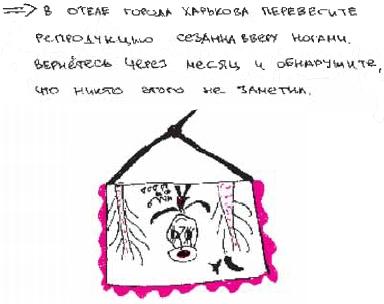 ⇒ В ОТЕЛЕ ГОРОДА ХАРЬКОВА ПЕРЕВЕСЬТЕ
РЕПРОДУКЦИЮ СЕЗАННА ВВЕРХ НОГАМИ.
ВЕРНЁТЕСЬ ЧЕРЕЗ МЕСЯЦ И ОБНАРУЖИТЕ,
ЧТО НИКТО ЭТОГО НЕ ЗАМЕТИЛ.